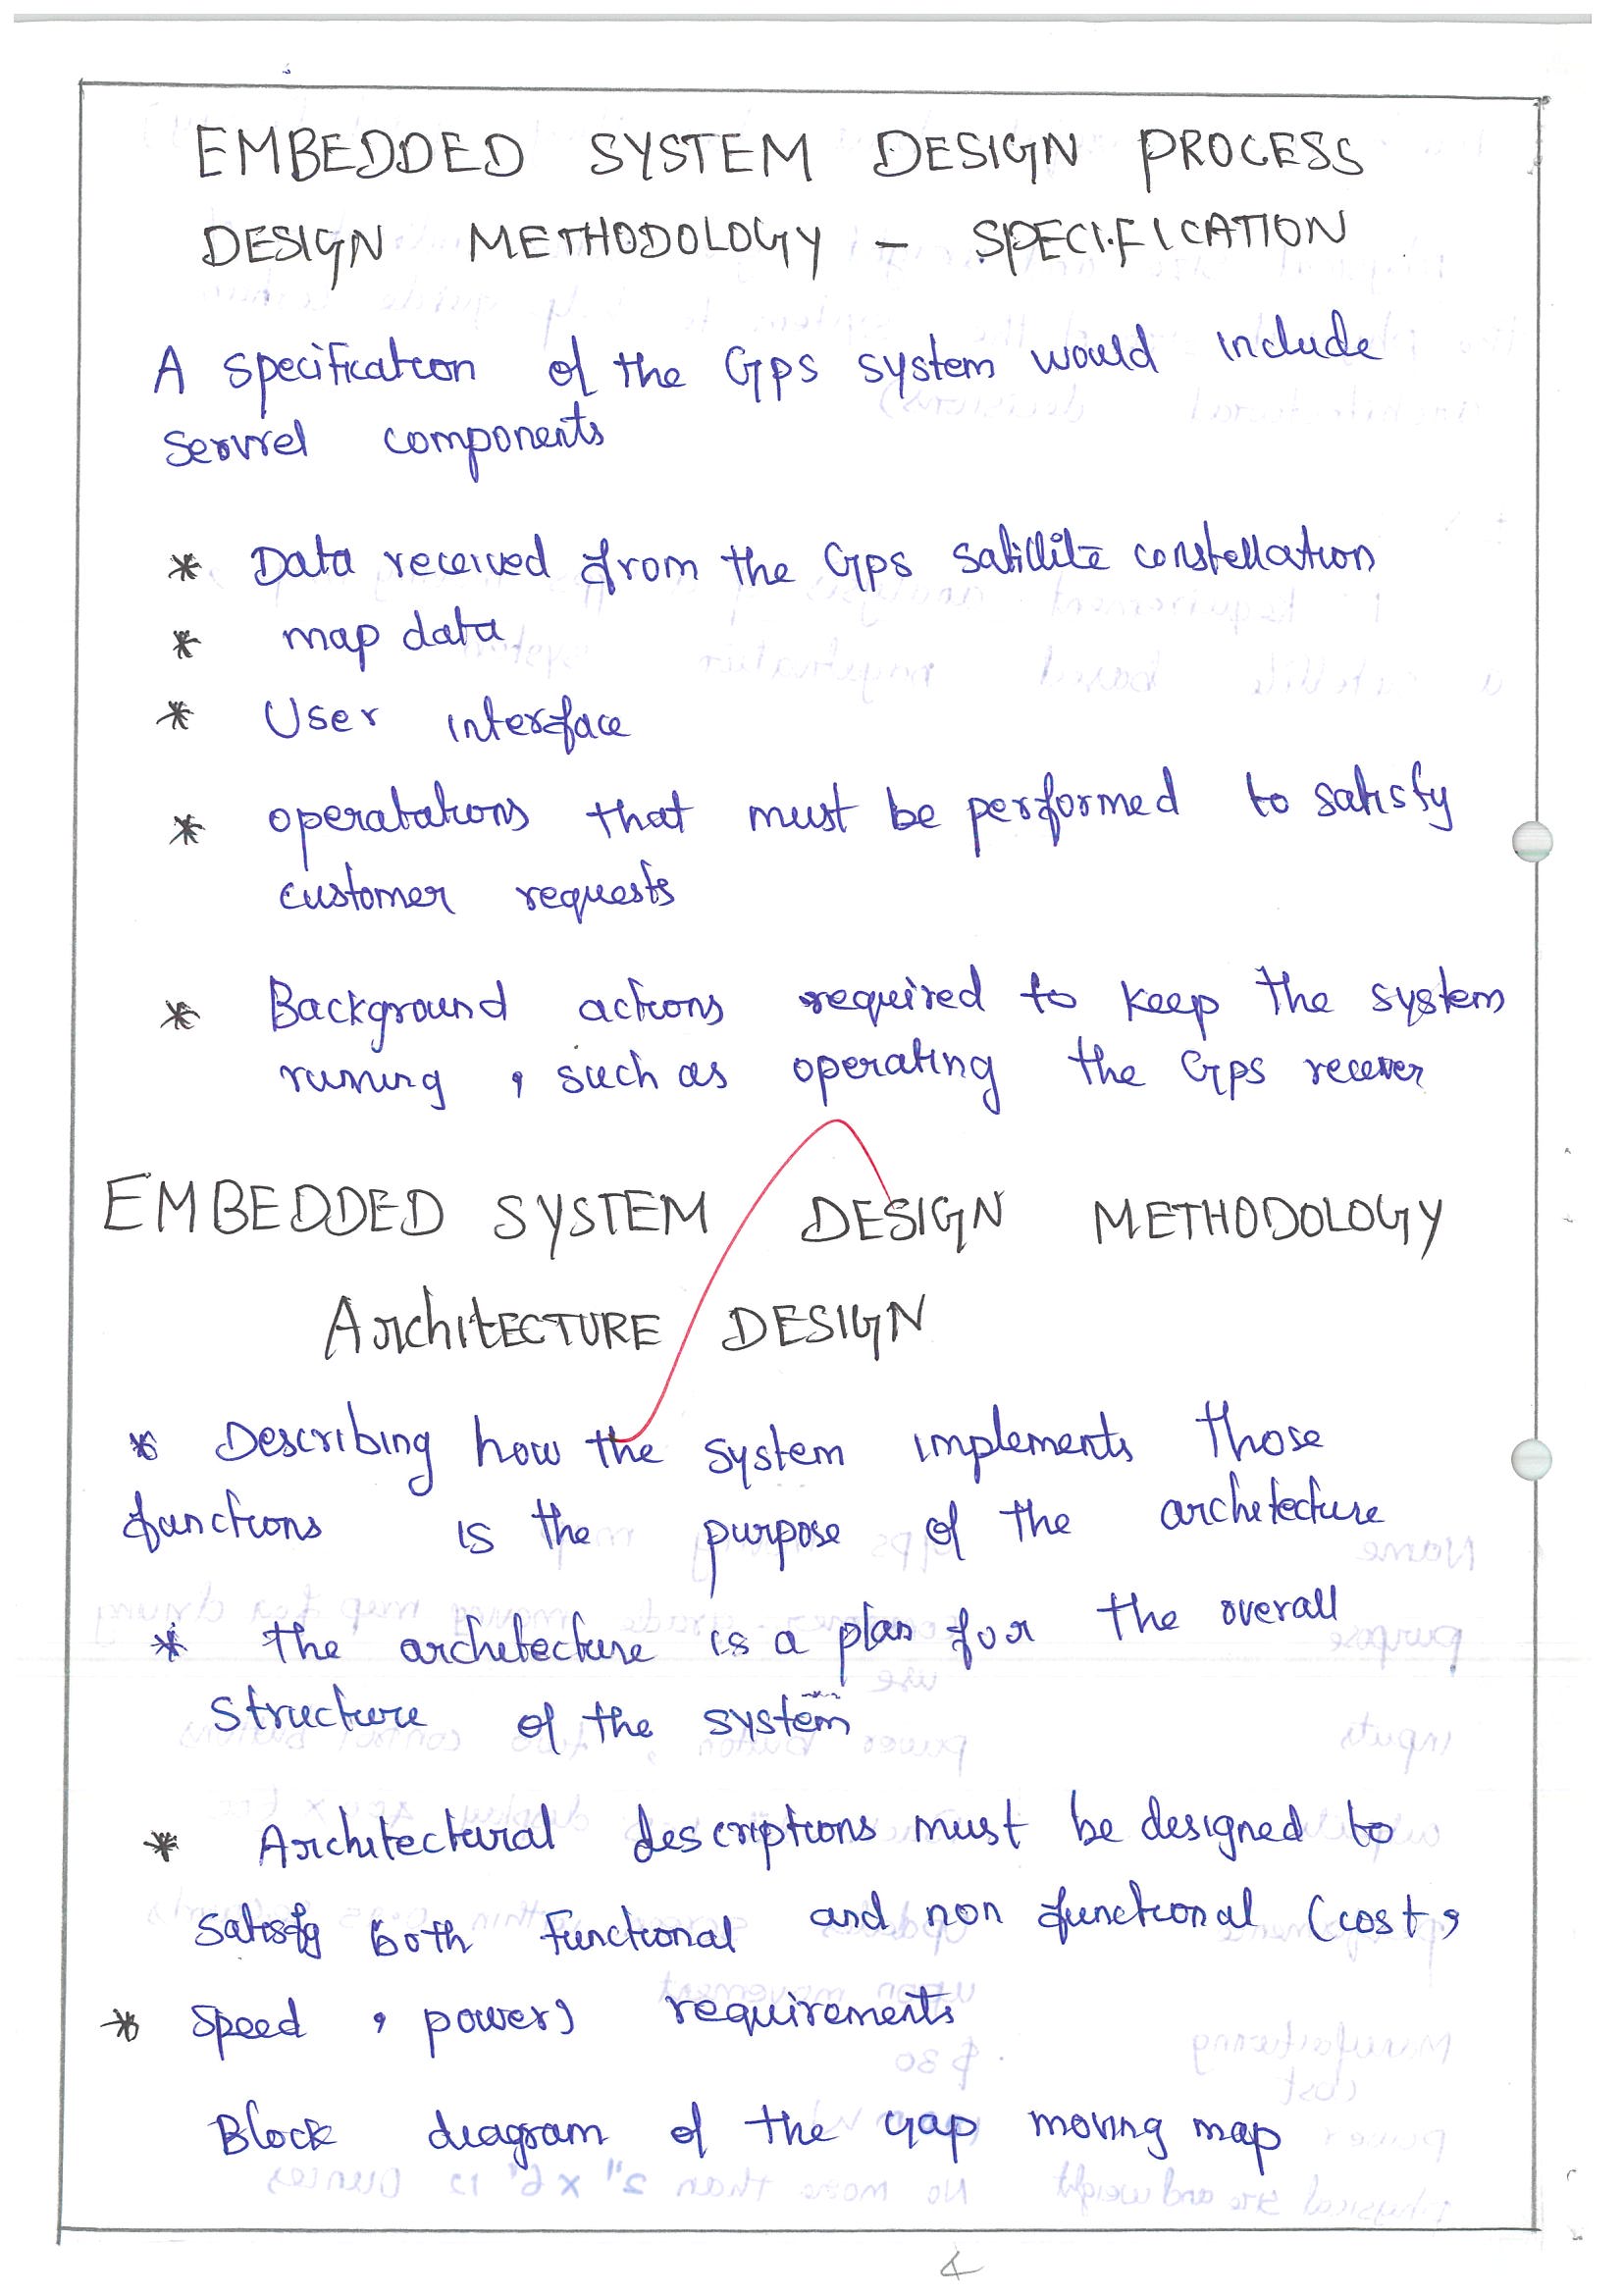 EMBEDDED SYSTEM DESIGN PROCESS
DESIGN METHODOLOGY - SPECIFICATION
A specification of the Gps system would include
servrel components
* Data received from the Gps satillite constellation
* map data
* User interface
* operatations that must be performed to satisfy
customer requests
* Background actions required to keep the system
running , such as operating the Gps recever
EMBEDDED SYSTEM DESIGN METHODOLOGY
ArchitECTURE DESIGN
* Describing how the system implements those
functions is the purpose of the architecture
* the architecture is a plan for the overall
structure of the system
* Architectural descriptions must be designed to
satisfy both functional and non functional (cost,
* speed , power) requirements
Block diagram of the gap moving map